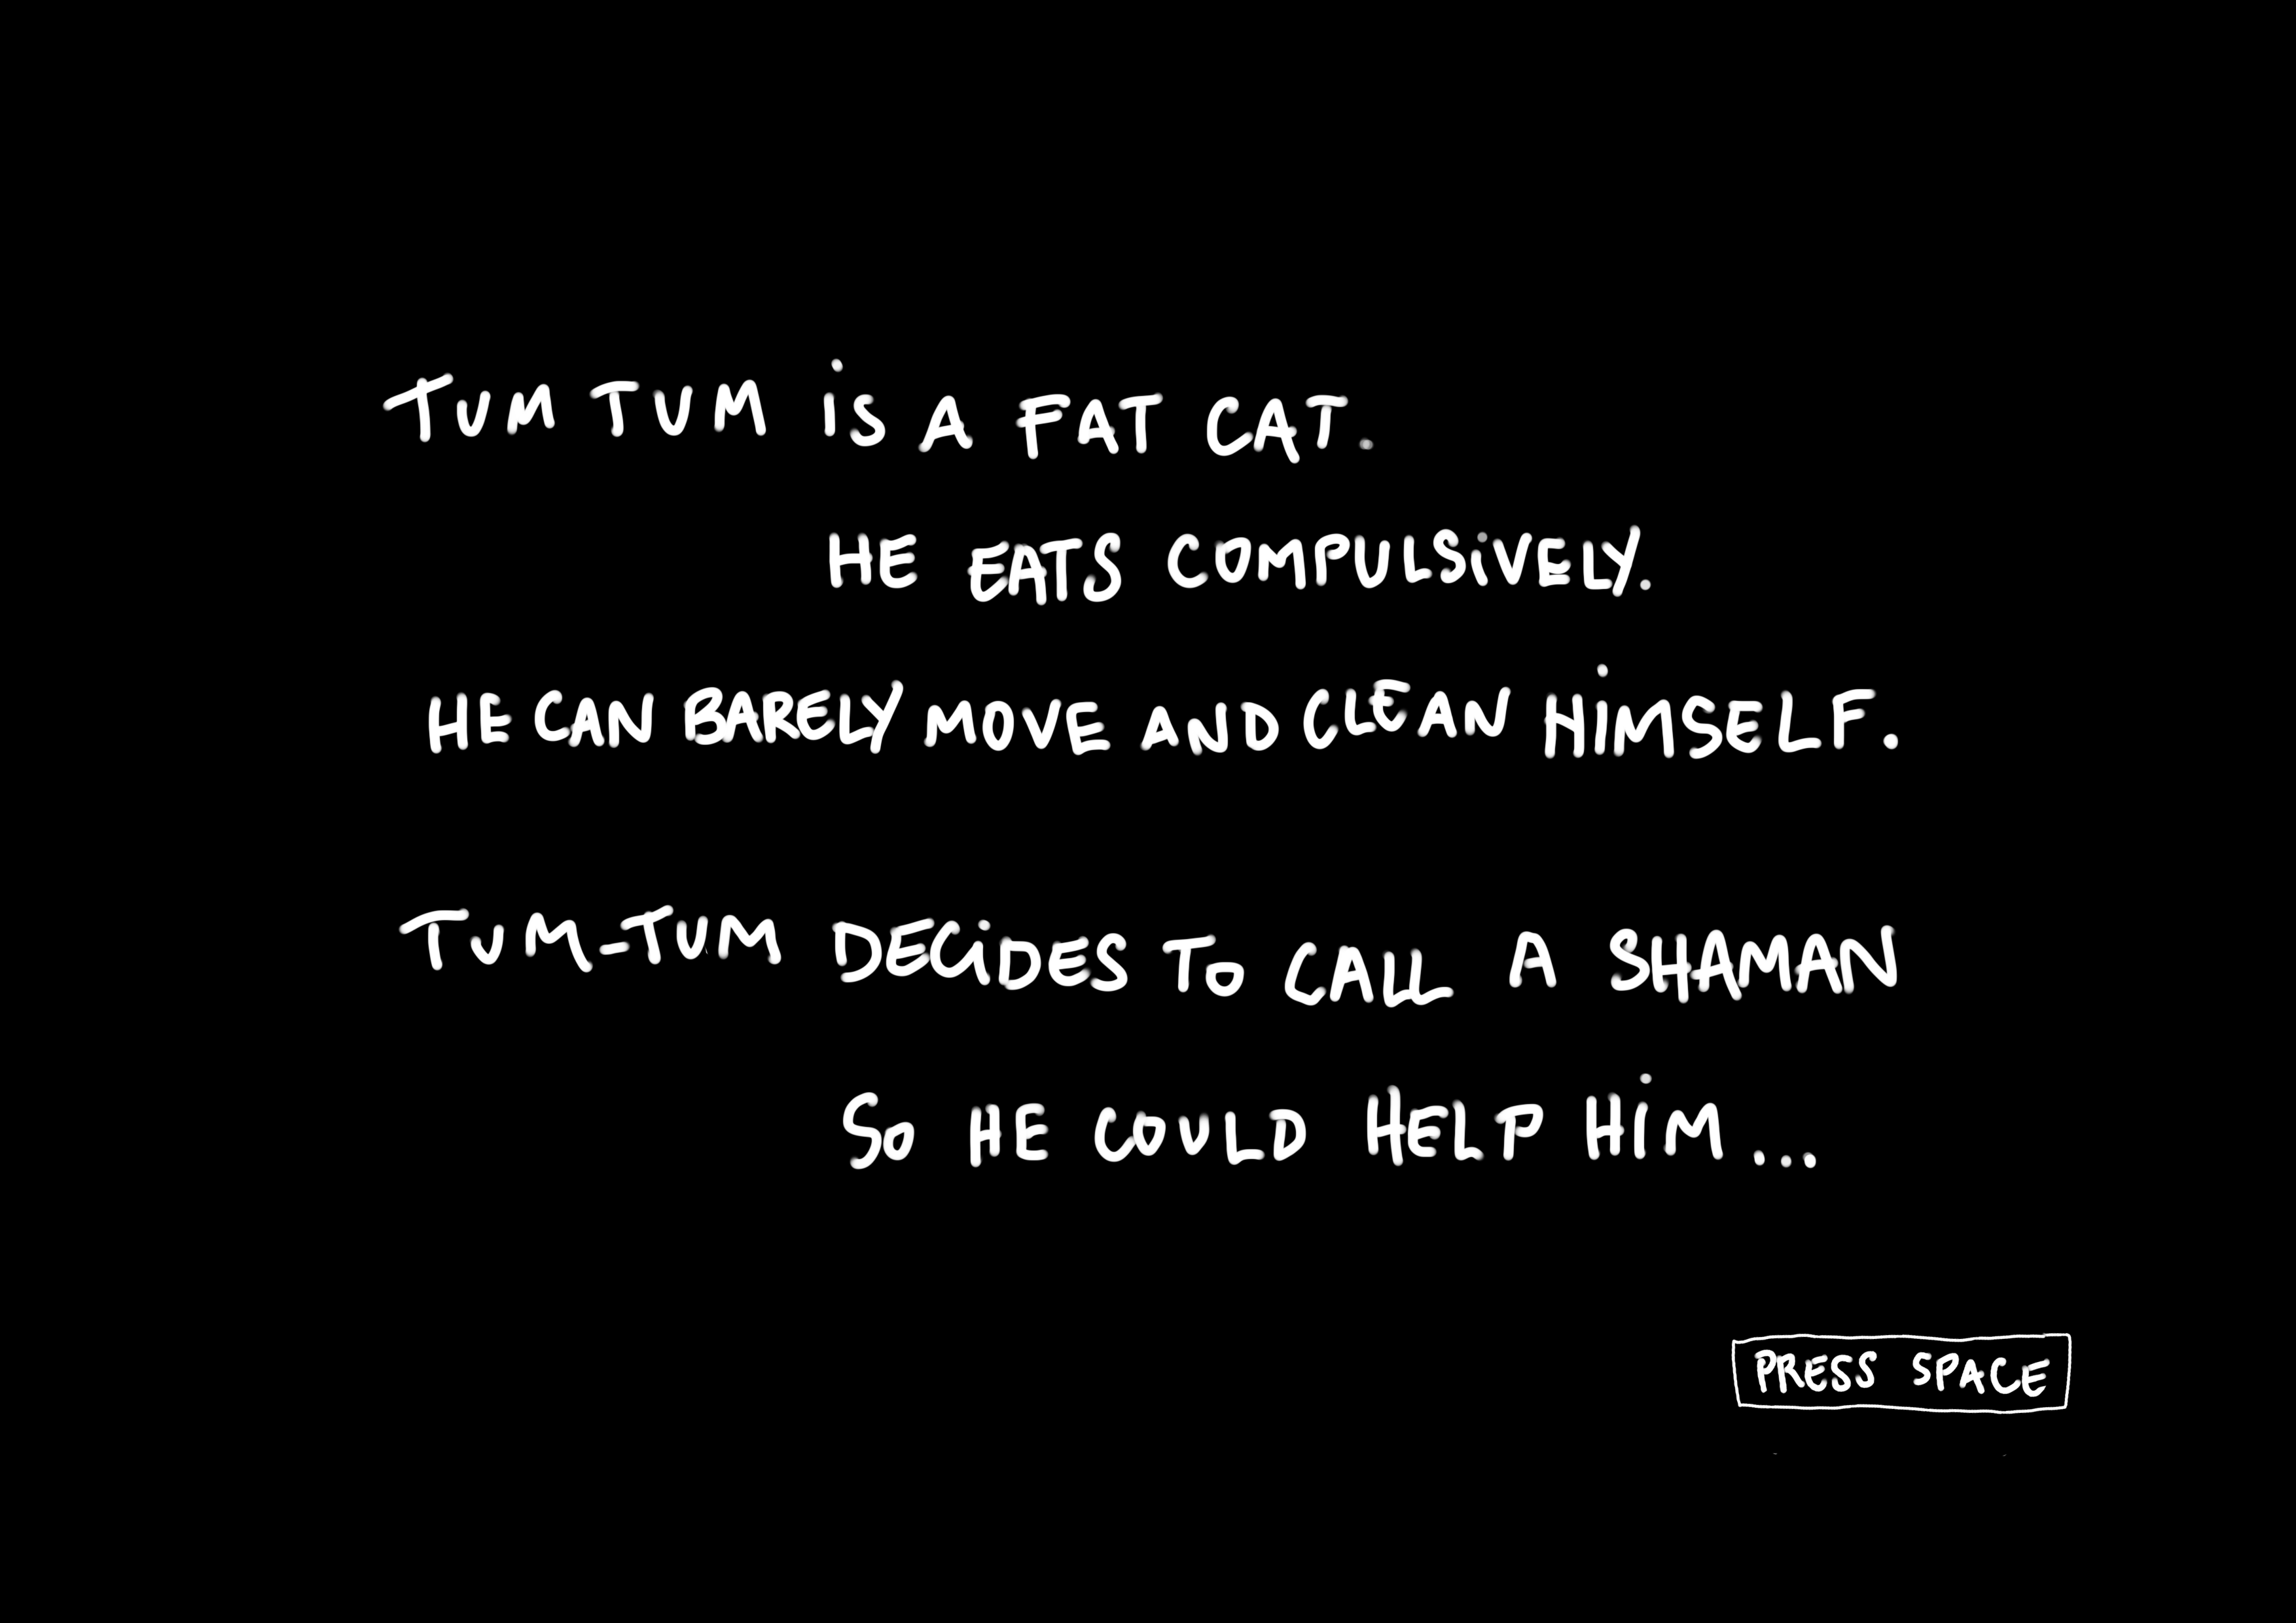 TUM TUM iS A FAT CAT.
HE EATS COMPULSiVELY.
HE CAN BARELY MOVE AND CLEAN HiMSELF.
TUM-TUM DECiDES TO CALL A SHAMAN
SO HE COULD HELP HiM...
PRESS SPACE